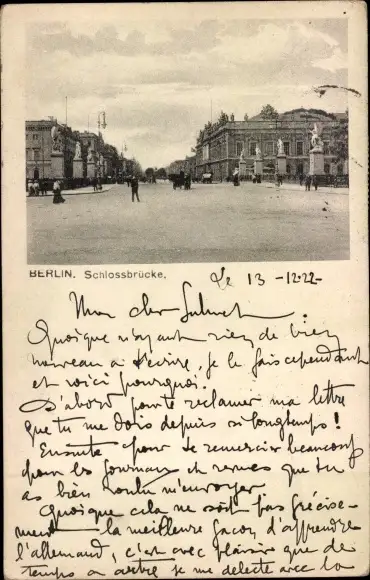 BERLIN. Schlossbrücke.
Le 13-12-22-
Mon cher
Quoique n'ayant rien de bien
nouveau à t'écrire, je le fais cependant
et voici pourquoi.
D'abord pour te réclamer ma lettre
que tu me dois depuis si longtemps!
Ensuite pour te remercier beaucoup
pour les journaux et revues que tu
as bien voulu m'envoyer
Quoique cela ne soit pas précisé-
ment la meilleure façon d'apprendre
l'allemand, c'est avec plaisir que de
temps en autre je me délecte avec la